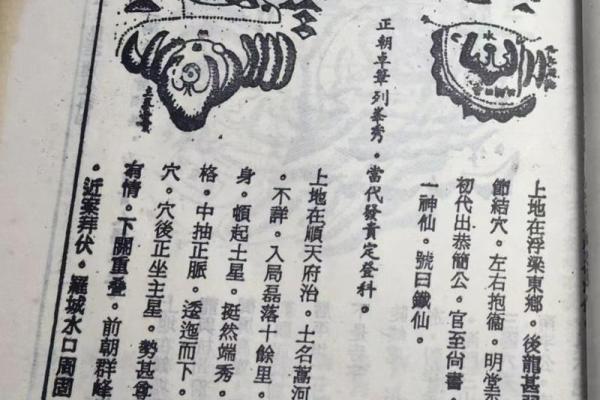 上地在浮梁東鄉。後龍甚
節結穴。左右抱衞。明堂
初代出恭簡公。官至尙書
一神仙。號曰鐵仙。
正朝卓筆列峯秀。當代發貴定登科。
上地在順天府治。土名蒿河
。不詳。入局磊落十餘里。
身。頓起土星。挺然端秀。
格。中抽正脈。逶迤而下。
穴。穴後正坐主星。勢甚尊
有情。下關重疊。前朝群峰
。近案拜伏。羅城水口周固